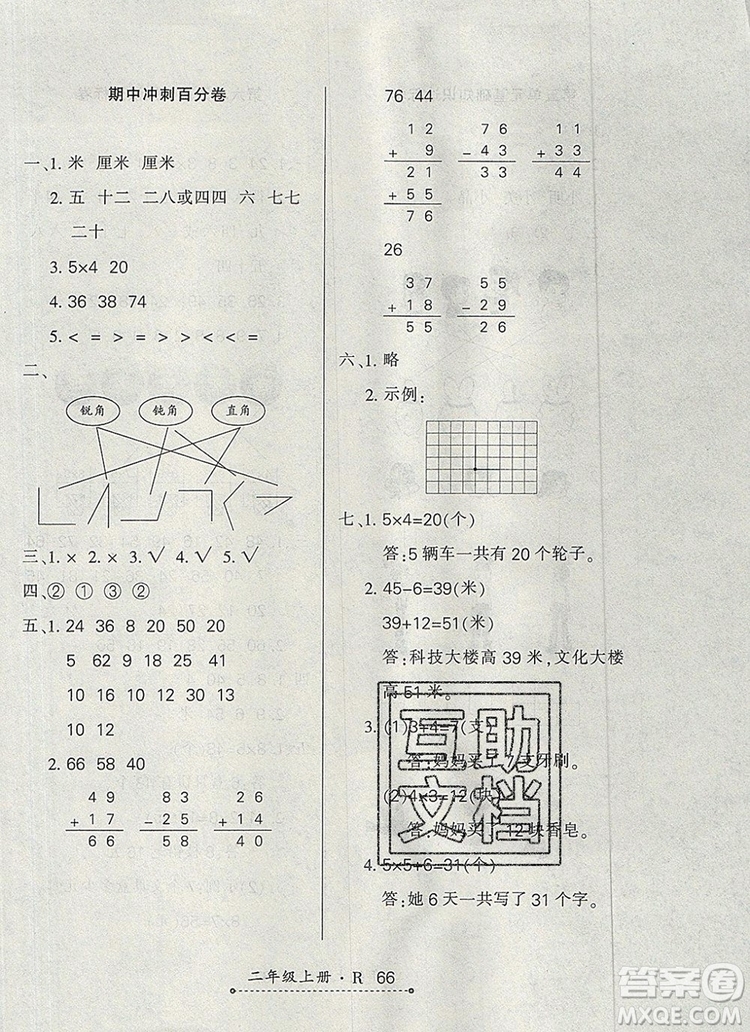 期中冲刺百分卷
一、1. 米 厘米 厘米
2. 五 十二 二八或四四 六 七七
二十
3. 5×4 20
4. 36 38 74
5. < = > > < < =
二、
锐角 钝角 直角
三、1. × 2. × 3. √ 4. √ 5. √
四、② ① ③ ②
五、1. 24 36 8 20 50 20
5 62 29 21 20
10 16 10 12 30 13
10 12
2. 66 58 40
4 9 8 3 2 6
+ 1 7 - 2 5 + 1 4
6 6 5 8 4 0
76 44
1 2 7 6 1 1
+ 9 - 4 3 + 3 3
2 1 3 3 4 4
+ 5 5
7 6
26
3 7 5 5
+ 1 8 - 2 9
5 5 2 6
六、1. 略
2. 示例:
七、1. 5×4=20(个)
答:5 辆车一共有 20 个轮子。
2. 45-6=39(米)
39+12=51(米)
答:科技大楼高 39 米,文化大楼
高 51 米。
3. (1)3+4=7(支)
答:妈妈买了 7 支牙刷。
(2)4×3=12(块)
答:妈妈买了 12 块香皂。
4. 5×5+6=31(个)
答:她 6 天一共写了 31 个字。
互助
文档
二年级上册·R 66
答案圈
MXQE.COM